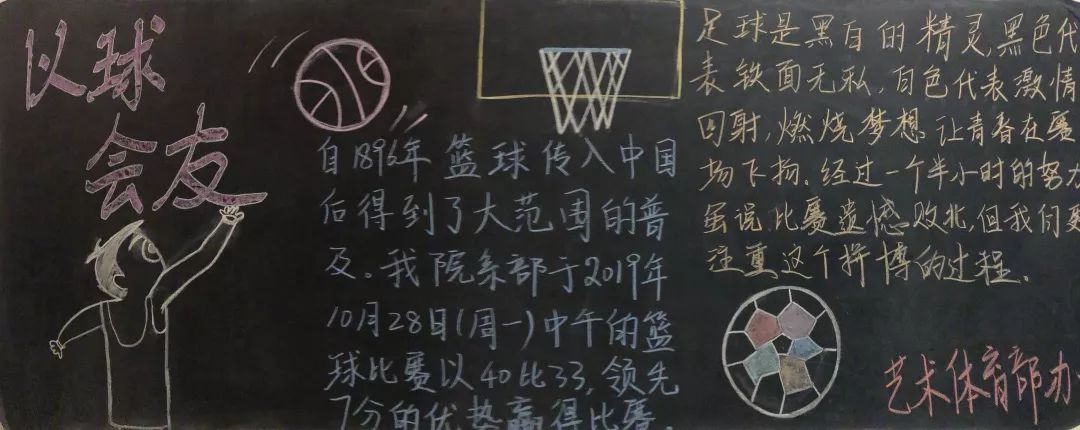 以球
会友
自1896年篮球传入中国
后得到了大范围的普
及。我院系部于2019年
10月28日(周一)中午的篮
球比赛以40比33,领先
7分的优势赢得比赛.
足球是黑白的精灵,黑色代
表铁面无私,白色代表激情
四射,燃烧梦想让青春在赛
场飞扬.经过一个半小时的努力
虽说比赛遗憾败北,但我们更
注重这个拼博的过程。
艺术体育部办